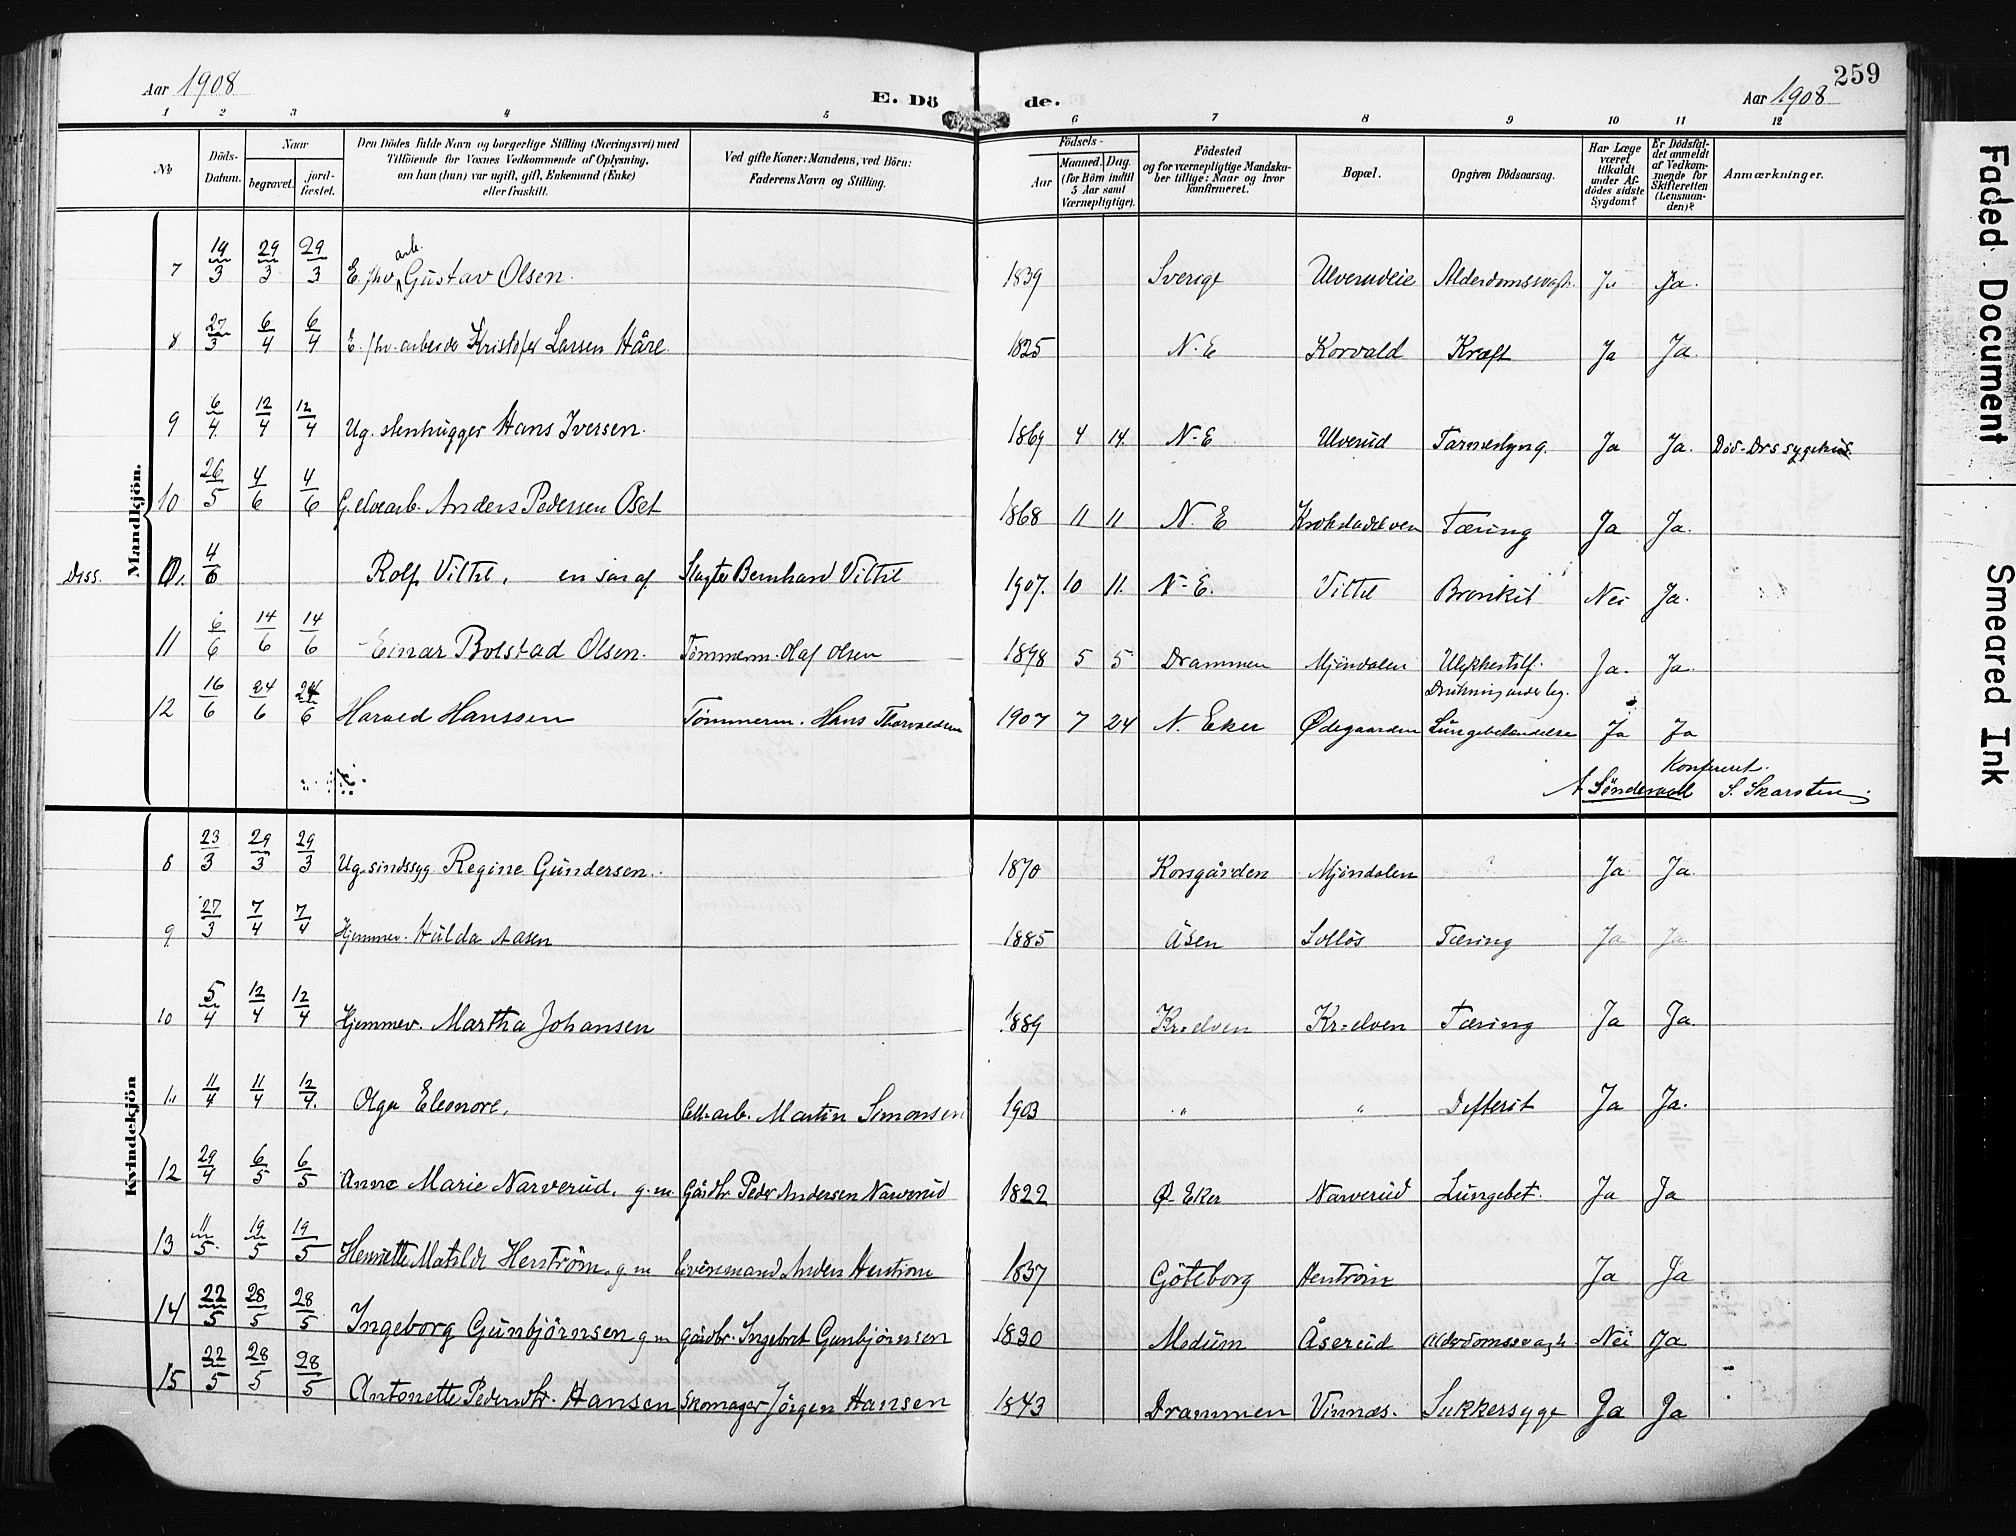 Aar 1908
E. Dö
de.
Aar 1908
259
1 2 3 4 5 6 7 8 9 10 11 12
No
Döds-Datum.
Naar
begravet.
jord-fæstet.
Den Dödes fulde Navn og borgerlige Stilling (Næringsvei) med Tilföiende for Voxnes Vedkommende af Oplysning, om han (hun) var ugift, gift, Enkemand (Enke) eller fraskilt.
Ved gifte Koner: Mandens, ved Börn: Faderens Navn og Stilling.
Födsels-
Aar
Maaned. Dag. (for Börn indtil 5 Aar samt Værnepligtige).
Födested og for værnepligtige Mandskaber tillige: Naar og hvor konfirmeret.
Bopæl.
Opgiven Dödsaarsag.
Har Læge været tilkaldt under Afdödes sidste Sygdom?
Er Dödsfaldet anmeldt af Vedkommende for Skifteretten (Lensmanden)?
Anmærkninger.
Mandkjön.
7 19/3 29/3 29/3 E. fhv. arb. Gustav Olsen. 1839 Sverige Ulverudeie Alderdomssvagh. Ja Ja.
8 27/3 6/4 6/4 E. fhv. arbeider Kristofer Larsen Håre. 1825 N.E Korvald Kræft Ja Ja.
9 6/4 12/4 12/4 Ug. stenhugger Hans Iversen. 1869 4 14. N.E Ulverud Tarmeslyng. Ja Ja. Död Drs sygehus.
10 26/5 4/6 4/6 G. elvearb. Anders Pedersen Oset 1868 11 11 N. E Krokstadelven Tæring Ja Ja.
Diss. 0. 4/6 Rolf Villel, en sön af Slagter Bernhard Villel 1907. 10 11. N. E. Villel Bronkit Nei Ja.
11 6/6 14/6 14/6 Einar Bolstad Olsen. Tömmerm. Olaf Olsen 1898 5 5 Drammen Mjöndalen Ulykkestilf. Drukning under leg. Ja. Ja.
12 16/6 24/6 24/6 Harald Hanssen Tömmerm. Hans Thorvaldsen 1907 7 24 N. Eker Ødegaarden Lungebetændelse Ja Ja
Konfereret.
A Söndervad S. Skarstein
Kvindekjön
8 23/3 29/3 29/3 Ug. sindssyg Regine Gundersen. 1870 Korsgården Mjöndalen ? Ja Ja.
9 27/3 7/4 7/4 Hjemmev. Hulda Aasen 1885 Åsen Solløs Tæring Ja Ja
10 5/4 12/4 12/4 Hjemmev. Martha Johansen 1889 Kr-elven Kr-elven Tæring Ja Ja.
11 11/4 11/4 12/4. Olga Eleonore, Cell.arb. Martin Simonsen 1903 " " Difterit Ja Ja.
12 29/4 6/5 6/5 Anne Marie Narverud, g.m. Gårdbr. Peder Andersen Narverud 1822 Ø. Eker Narverud Lungebet. Ja Ja
13 11/5. 19/5 19/5 Henriette Matilde Henström. g m Anders Henström 1837 Göteborg Henström Ja Ja
14 22/5 28/5 28/5. Ingeborg Gunbjörnsen g m gårdbr. Ingebret Gunbjörnsen 1830 Modum Åserud Alderdomssvagh. Nei Ja
15 22/5 28/5 28/5 Antonette Pedersdtr. Hansen Skomager Jörgen Hansen 1843 Drammen Vinnæs. Sukkersyge Ja Ja
Faded Document
Smeared Ink